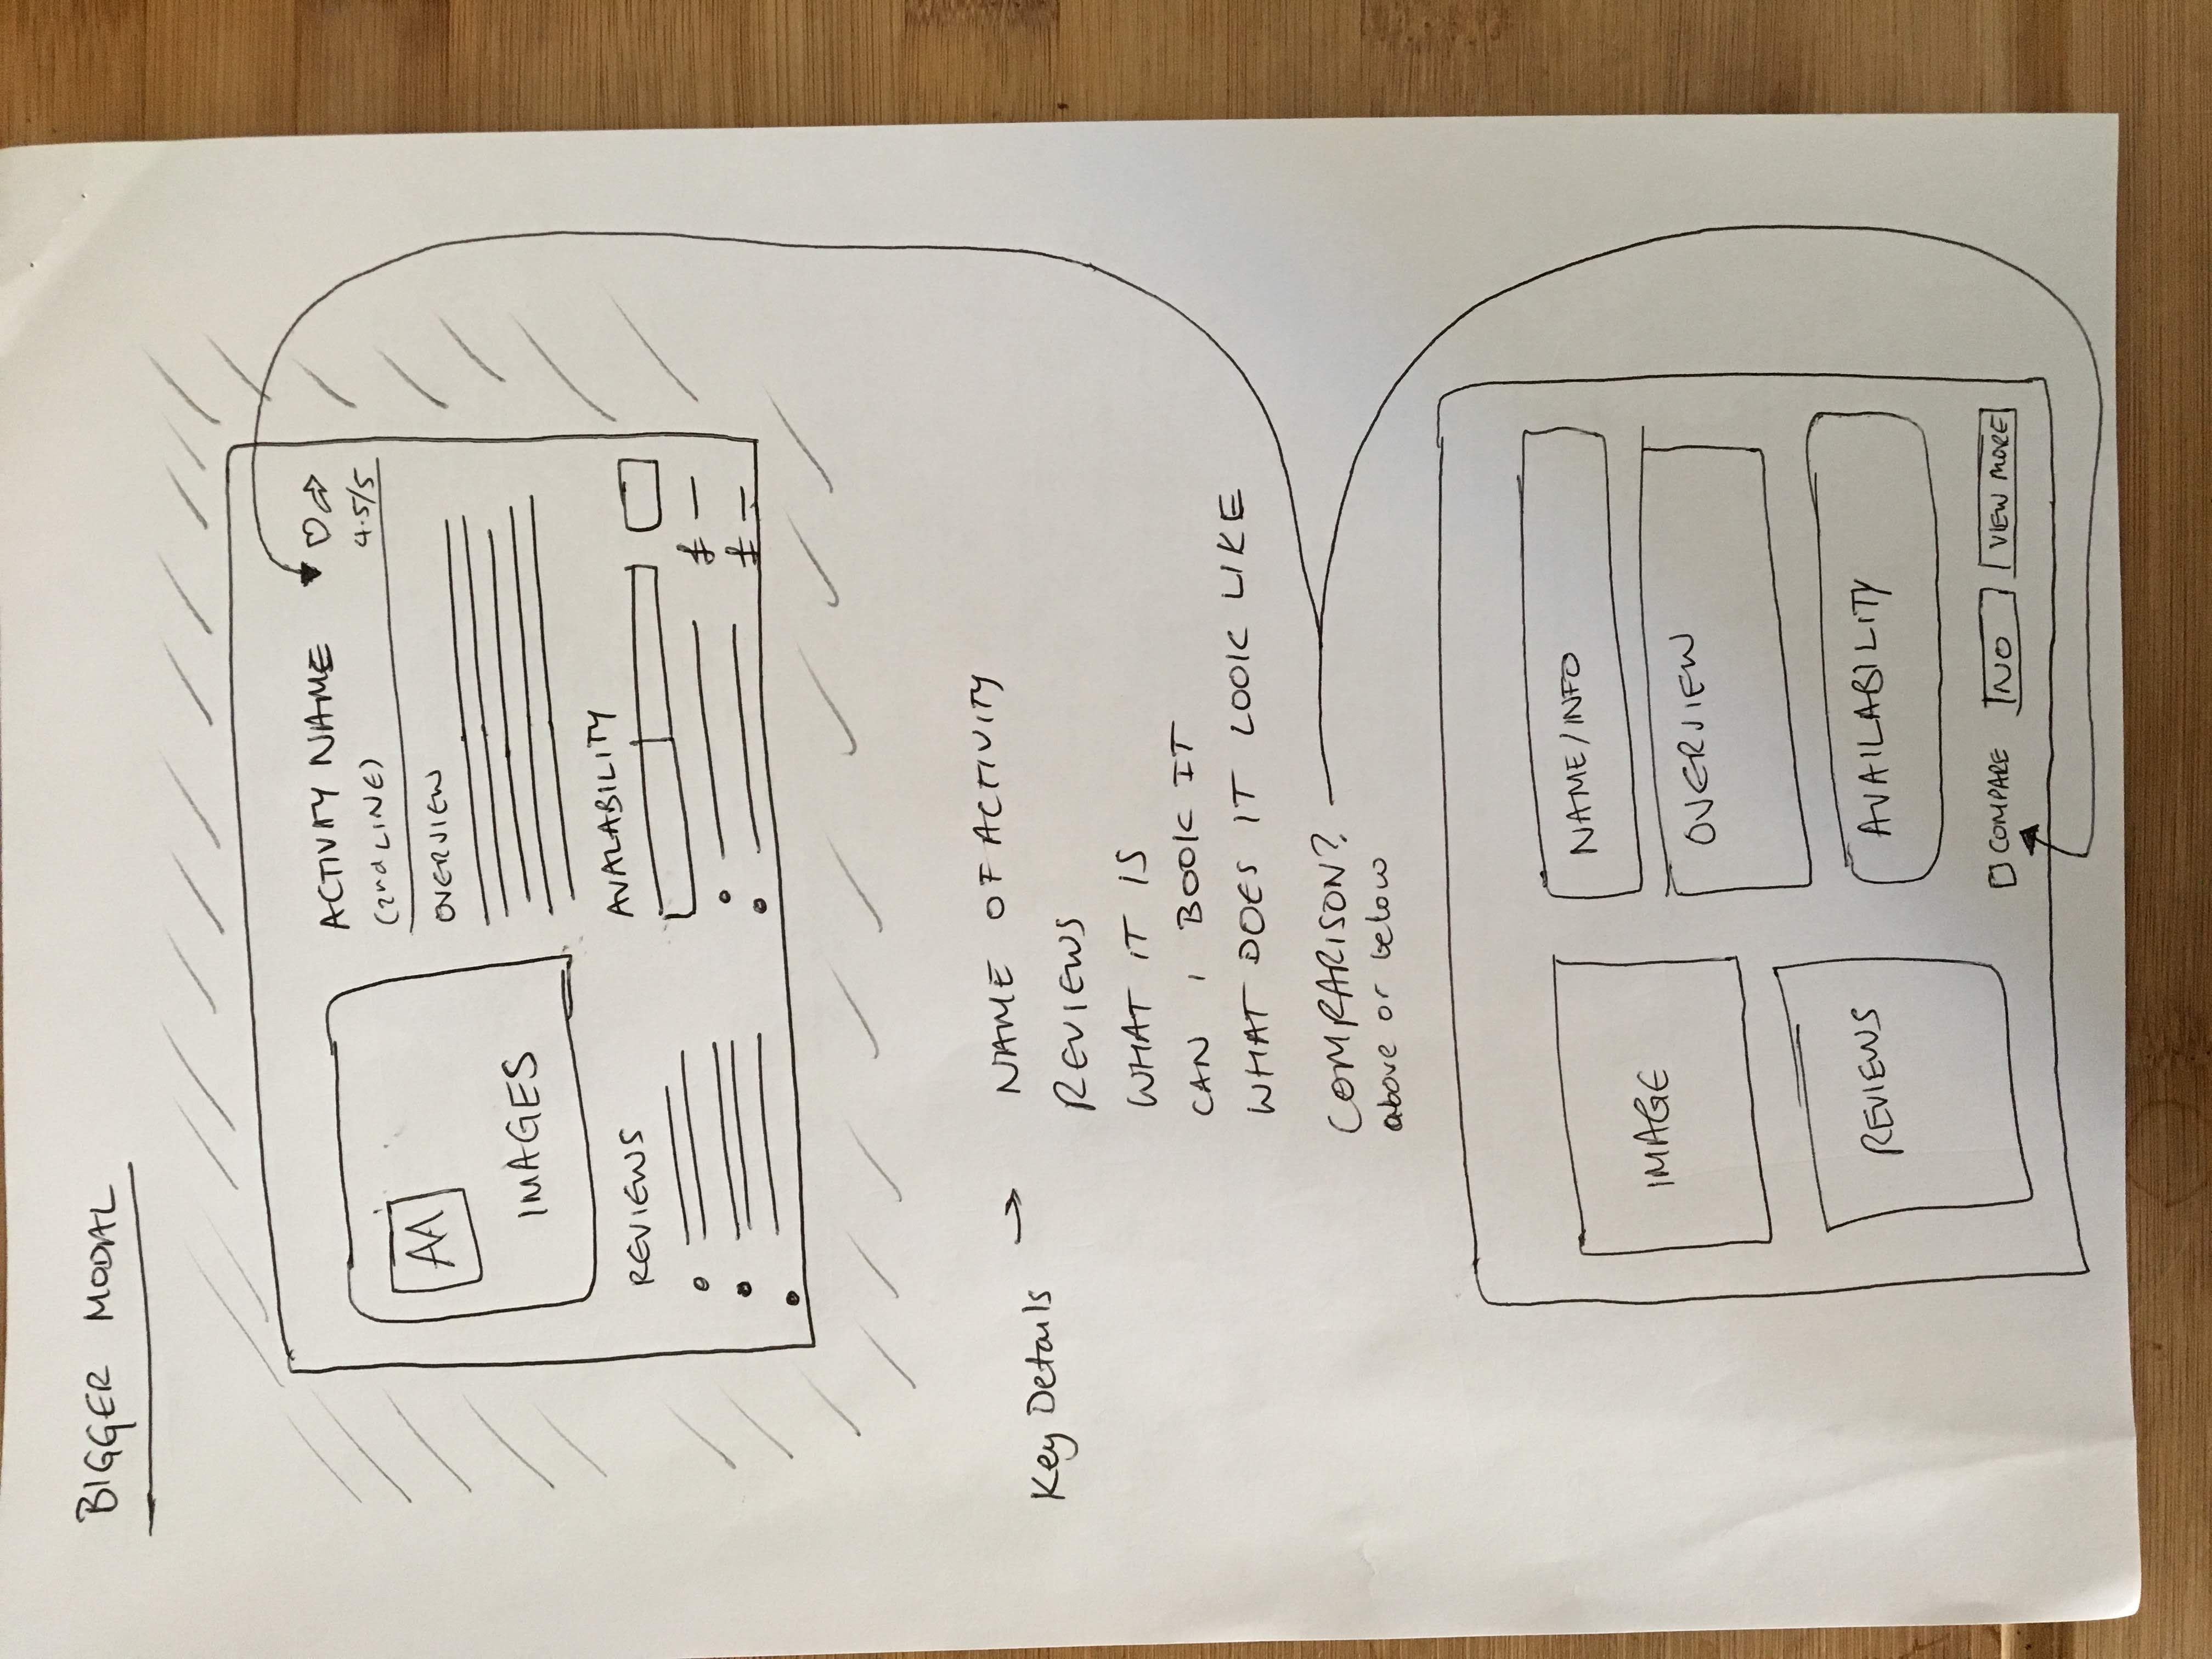 BIGGER MODAL
ACTIVITY NAME
(2nd LINE)
4.5/5
AA
IMAGES
OVERVIEW
REVIEWS
AVALABILITY
£ —
£ —
Key Details → NAME OF ACTIVITY
REVIEWS
WHAT IT IS
CAN I BOOK IT
WHAT DOES IT LOOK LIKE
COMPARISON?
above or below
IMAGE
NAME/INFO
OVERVIEW
REVIEWS
AVAILABILITY
COMPARE NO VIEW MORE